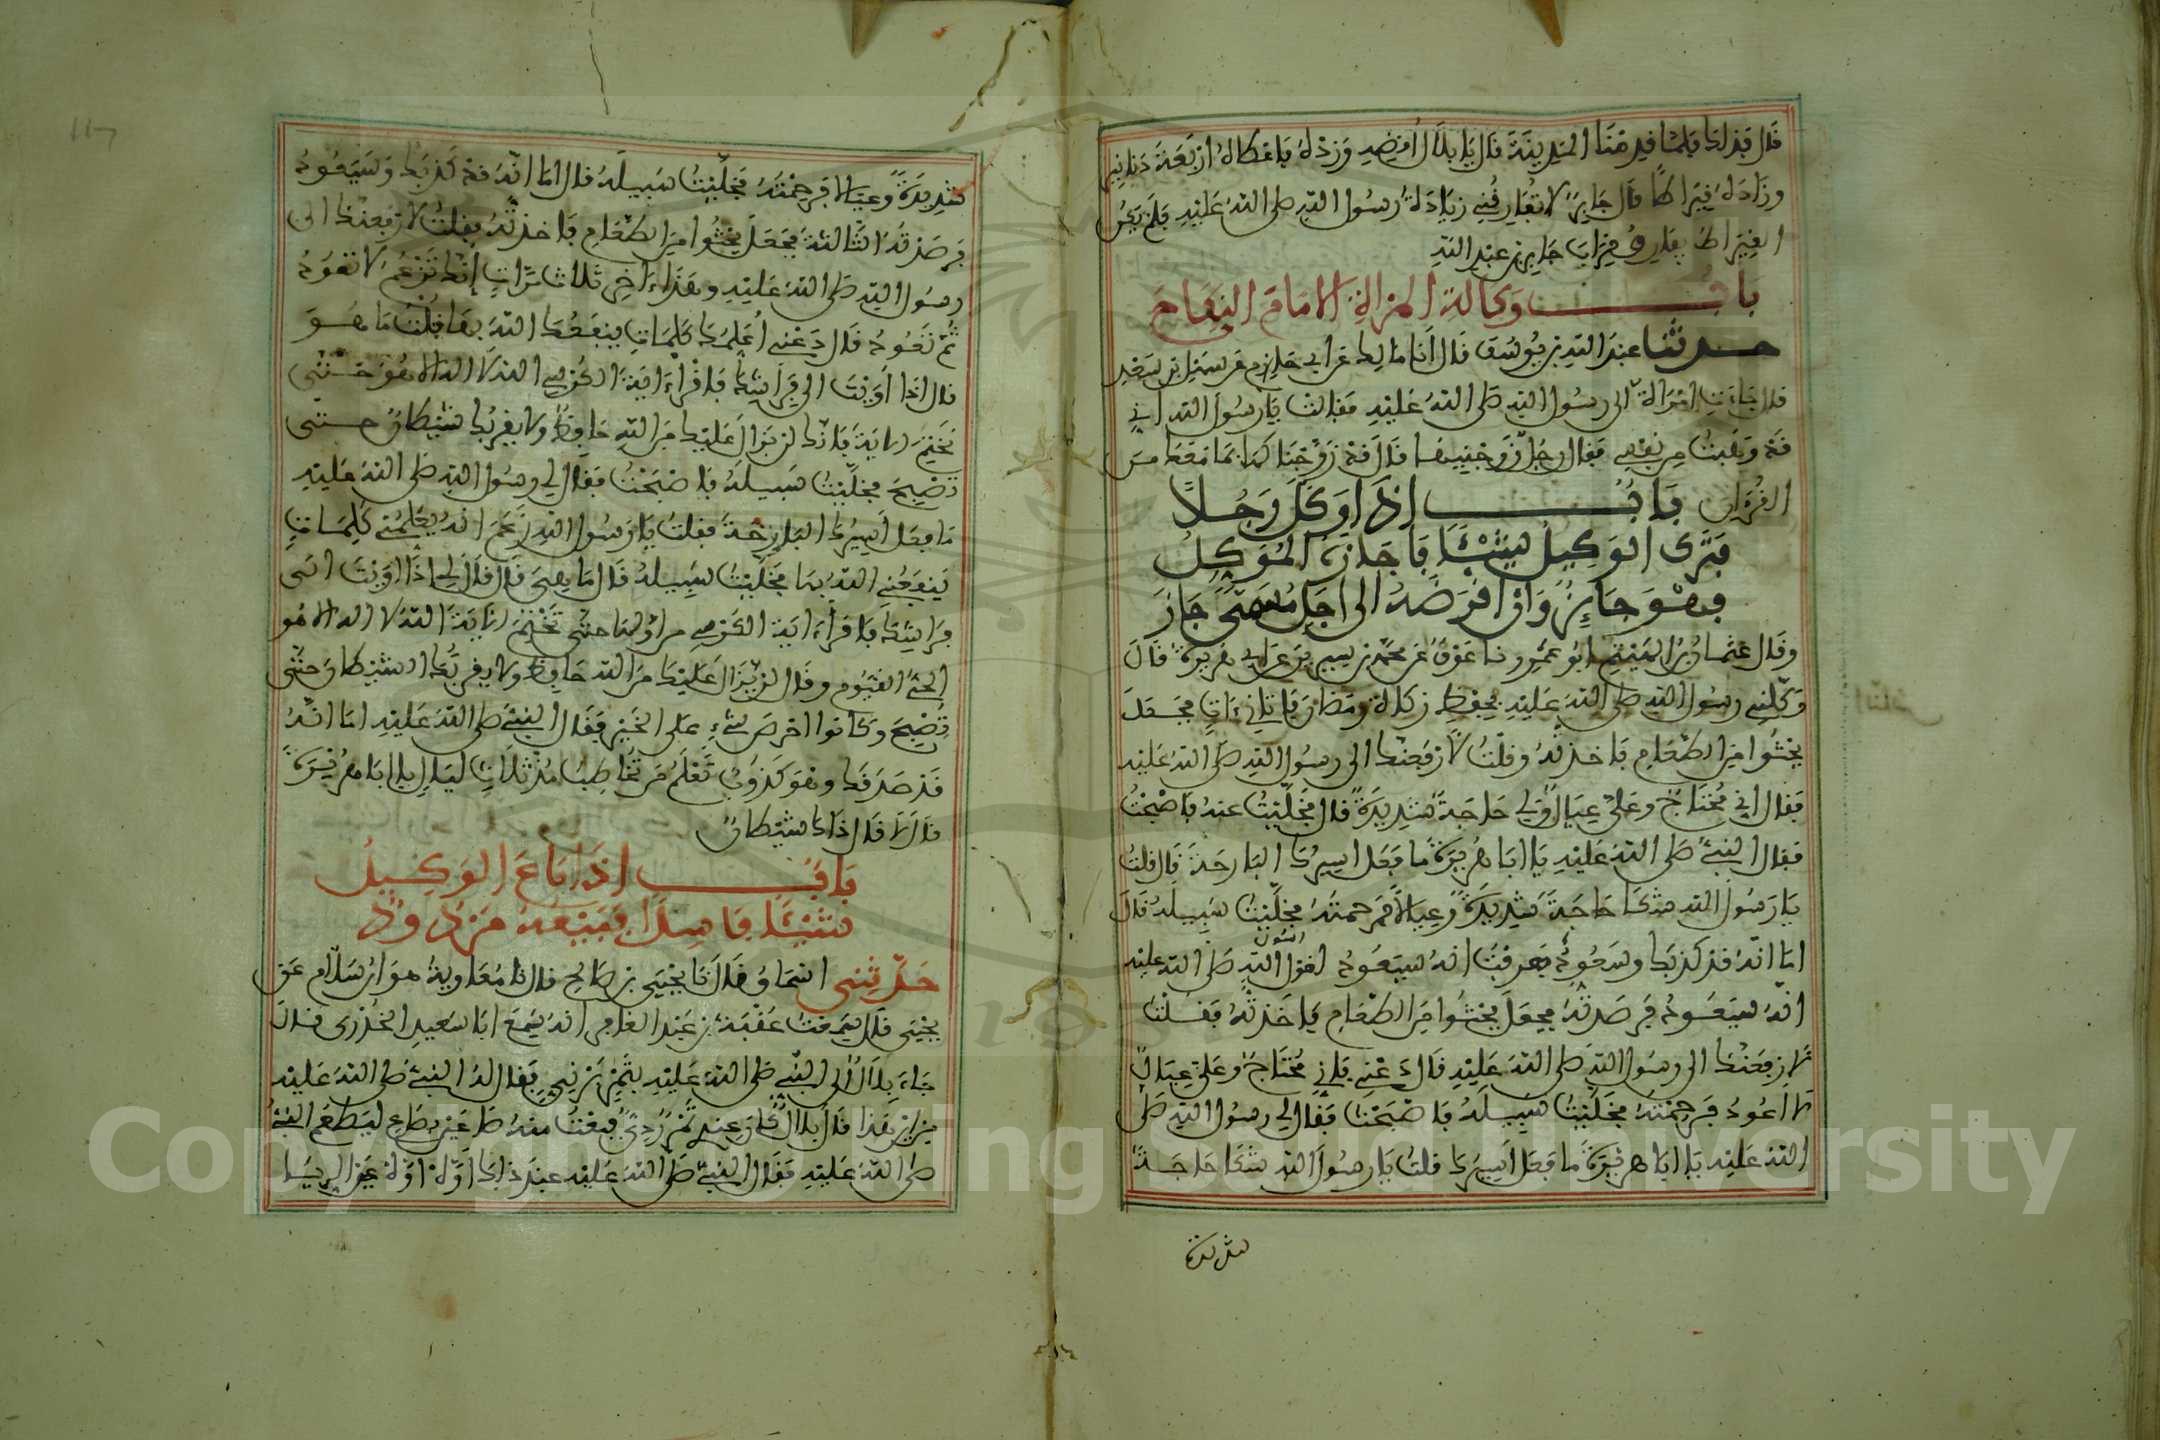 قال فذلك فلما قدمنا المدينة قال يا بلال اقضه وزده فاعطاه اربعة دنانير
وزاده قيراطا قال جابر لا تفارقني زيادة رسول الله صلى الله عليه فلم يكن
القيراط يفارق قراب جابر بن عبد الله
باب وكالة المراة الامام في النكاح
حدثنا عبد الله بن يوسف قال انا مالك عن ابي حازم عن سهل بن سعد
قال جاءت امراة الى رسول الله صلى الله عليه فقالت يا رسول الله اني
قد وهبت من نفسي فقال رجل زوجنيها قال قد زوجناكها بما معك من
القران باب اذا وكل رجلا
فترك الوكيل شيئا فاجازه الموكل
فهو جائز وان اقرضه الى اجل مسمى جاز
وقال عثمان بن الهيثم ابو عمرو نا عوف عن محمد بن سيرين عن ابي هريرة قال
وكلني رسول الله صلى الله عليه بحفظ زكاة رمضان فاتاني ءات فجعل
يحثوا من الطعام فاخذته وقلت لارفعنك الى رسول الله صلى الله عليه
فقال اني محتاج وعلي عيال ولي حاجة شديدة قال فخليت عنه فاصبحت
فقال النبي صلى الله عليه يا ابا هريرة ما فعل اسيرك البارحة قال قلت
يا رسول الله شكا حاجة شديدة وعيالا فرحمته فخليت سبيله قال
اما انه قد كذبك وسيعود فعرفت انه سيعود لقول رسول الله صلى الله عليه
انه سيعود فرصدته فجعل يحثوا من الطعام فاخذته فقلت
لارفعنك الى رسول الله صلى الله عليه قال دعني فاني محتاج وعلي عيال
لا اعود فرحمته فخليت سبيله فاصبحت فقال لي رسول الله صلى
الله عليه يا ابا هريرة ما فعل اسيرك قلت يا رسول الله شكا حاجة
شديدة
شديدة وعيالا فرحمته فخليت سبيله قال اما انه قد كذبك وسيعود
فرصدته الثالثة فجعل يحثوا من الطعام فاخذته فقلت لارفعنك الى
رسول الله صلى الله عليه وهذا ءاخر ثلاث مرات انك تزعم لا تعود
ثم تعود قال دعني اعلمك كلمات ينفعك الله بها قلت ما هو
قال اذا اويت الى فراشك فاقراء اية الكرسي الله لا اله الا هو حتى
تختم الاية فانك لن يزال عليك من الله حافظ ولا يقربك شيطان حتى
تصبح فخليت سبيله فاصبحت فقال لي رسول الله صلى الله عليه
ما فعل اسيرك البارحة فقلت يا رسول الله زعم انه يعلمني كلمات
ينفعني الله بها فخليت سبيله قال ما هي قال قال لي اذا اويت الى
فراشك فاقراء اية الكرسي من اولها حتى تختم الاية الله لا اله الا هو
الحي القيوم وقال لن يزال عليك من الله حافظ ولا يقربك الشيطان حتى
تصبح وكانوا احرص شيء على الخير فقال النبي صلى الله عليه اما انه
قد صدقك وهو كذوب تعلم من تخاطب مذ ثلاث ليال يا ابا هريرة
قال لا قال ذاك شيطان
باب اذا باع الوكيل
شيئا فاسدا فبيعه مردود
حدثني اسحاق قال نا يحيى بن صالح قال نا معاوية هو ابن سلام عن
يحيى قال سمعت عقبة بن عبد الغافر انه سمع ابا سعيد الخدري قال
جاء بلال الى النبي صلى الله عليه بتمر برني فقال له النبي صلى الله عليه
من اين هذا قال بلال كان عندي تمر ردي فبعت منه صاعين بصاع ليطعم النبي
صلى الله عليه فقال النبي صلى الله عليه عند ذلك اوه اوه عين الربا
Copyright © King Saud University